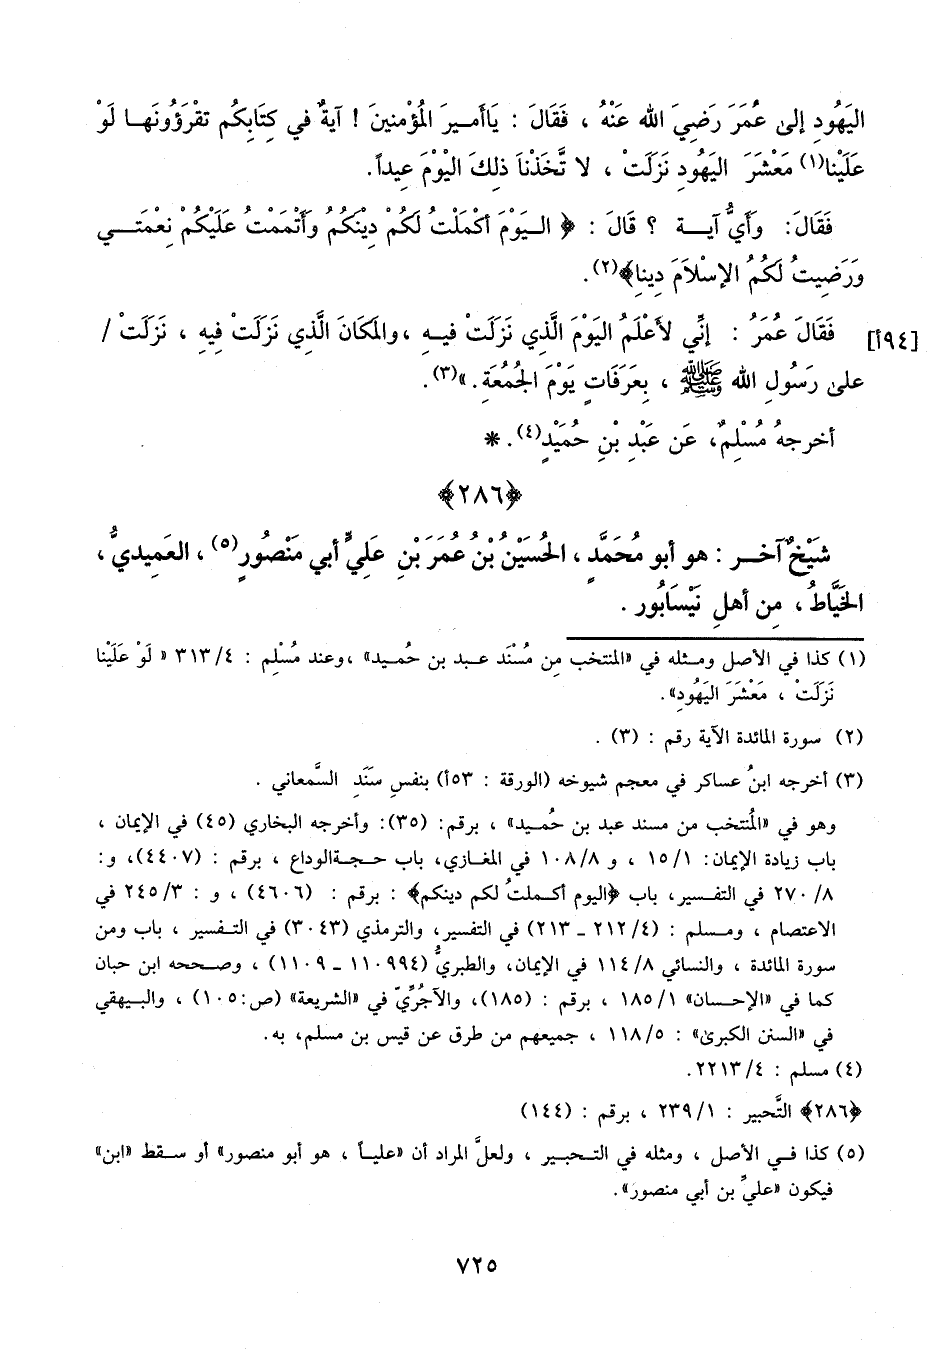 اليَهُودِ إلى عُمَرَ رَضِيَ الله عَنْهُ ، فَقَالَ : يَاأَمـيرَ المُؤْمنينَ ! آيةٌ في كِتَابِكُم تقْرَؤُونَهـا لَوْ
عَلَيْنا(١) مَعْشَرَ اليَهُودِ نَزَلَتْ ، لا تَّخَذْنَا ذلِكَ اليَوْمَ عِيداً.
فَقَالَ: وَأَيُّ آيـة ؟ قَالَ : ﴿ الـيَوْمَ أكْمَلْتُ لَكُمْ دِينَكُمُ وَأَتْمَمْتُ عَلَيْكُمْ نِعْمَتـي
وَرَضِيتُ لَكُمُ الإسْلاَمَ دِينا﴾(٢).
[١٩٤أ] فَقَالَ عُمَرُ : إنِّي لأَعْلَمُ اليَومَ الَّذي نَزَلَتْ فيـهِ ،والمَكَانَ الَّذي نَزَلَتْ فِيهِ ، نَزَلَتْ /
على رَسُولِ الله ﷺ ، بِعَرَفَاتٍ يَوْمَ الجُمُعَةِ. »(٣).
أخرجهُ مُسْلِمٌ، عَن عَبْدِ بْنِ حُمَيْدٍ(٤). *
﴿٢٨٦﴾
شَيْخٌ آخـر : هو أبو مُحَمَّدٍ ، الحُسَيْنُ بْنُ عُمَرَ بْنِ عَلِيٍّ أبي مَنْصُورٍ(٥) ، العَميديُّ ،
الخَيَّاطُ ، مِن أهلِ نَيْسَابُور .
(١) كذا في الأصل ومـثله في «المنتخب مِن مُسْنَد عـبد بن حُمـيد» ،وعند مُسْلِم : ٣١٣/٤ « لَوْ عَلَيْنا
نَزَلَتْ ، مَعْشَرَ اليَهُودِ».
(٢) سورة المائدة الآية رقم : (٣) .
(٣) أخرجه ابنُ عساكر في معجم شيوخه (الورقة : ٥٣أ) بنفس سَنَدِ السَّمعاني .
وهو في «المُنتخب من مسند عبد بن حُمـيد» ، برقم: (٣٥): وأخرجه البخاري (٤٥) في الإيمان ،
باب زيادة الإيمان: ١٥/١ ، و ١٠٨/٨ في المغازي، باب حـجـةالوداع ، برقم : (٤٤٠٧)، و:
٢٧٠/٨ في التفسير، باب ﴿اليوم أكـملتُ لكم دينكم﴾ : برقم : (٤٦٠٦) ، و : ٢٤٥/٣ في
الاعتصام ، ومـسلم : (٢١٢/٤ ـ ٢١٣) في التفسير، والترمذي (٣٠٤٣) في التـفسير ، باب ومن
سورة المائدة ، والنسائي ١١٤/٨ في الإيمان، والطبريُّ (١١٠٩٩٤ ـ ١١٠٩) ، وصـححه ابن حبان
كما في «الإحسان» ١٨٥/١ ، برقم : (١٨٥)، والآجُرِّيّ في «الشريعة» (ص:١٠٥) ، والبيهقي
في «السنن الكبرى» : ١١٨/٥ ، جميعهم من طرق عن قيس بن مسلم، به.
(٤) مسلم : ٢٢١٣/٤.
﴿٢٨٦﴾ التَّحبير : ٢٣٩/١ ، برقم : (١٤٤)
(٥) كذا فـي الأصل ، ومثله في التـحبـير ، ولعلَّ المراد أن «عليـاً ، هو أبو منصور» أو سـقط «ابن»
فيكون «عليِّ بن أبي منصورَ».
٧٢٥